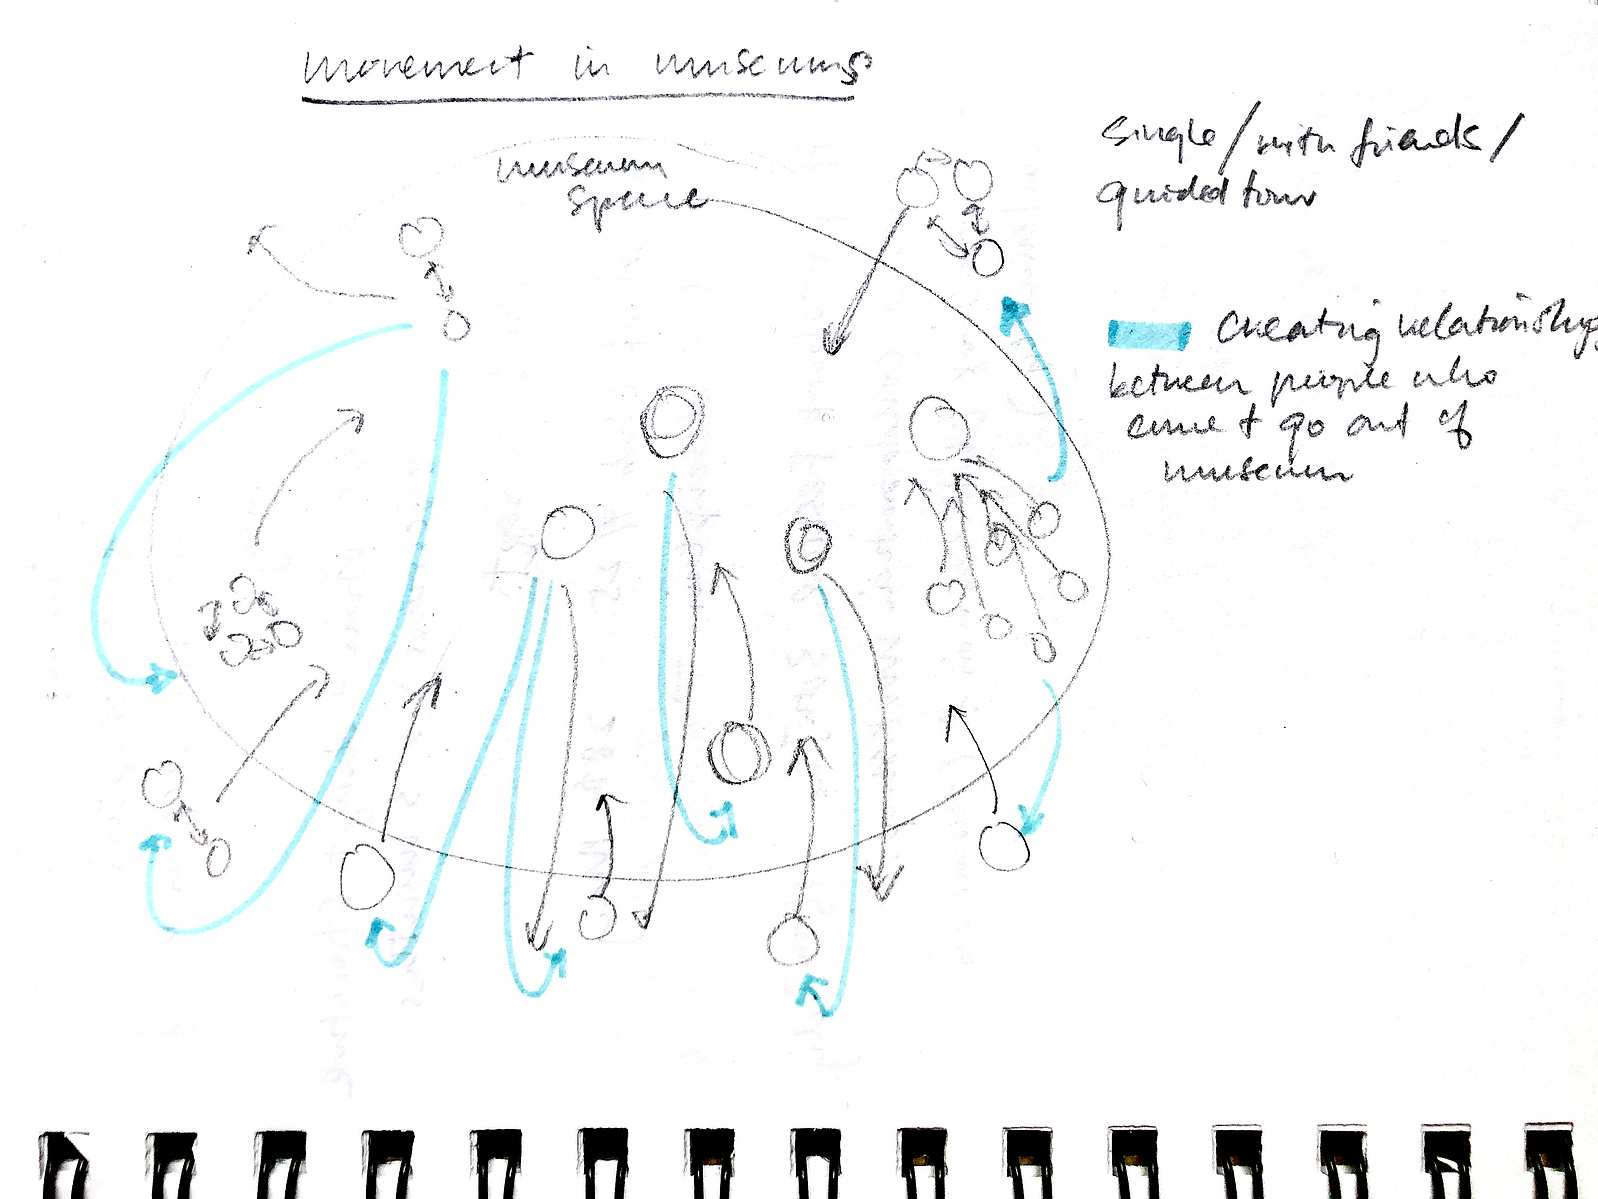 movement in museums
museum
space
single/with friends/
guided tour
creating relationships
between people who
come + go out of
museum